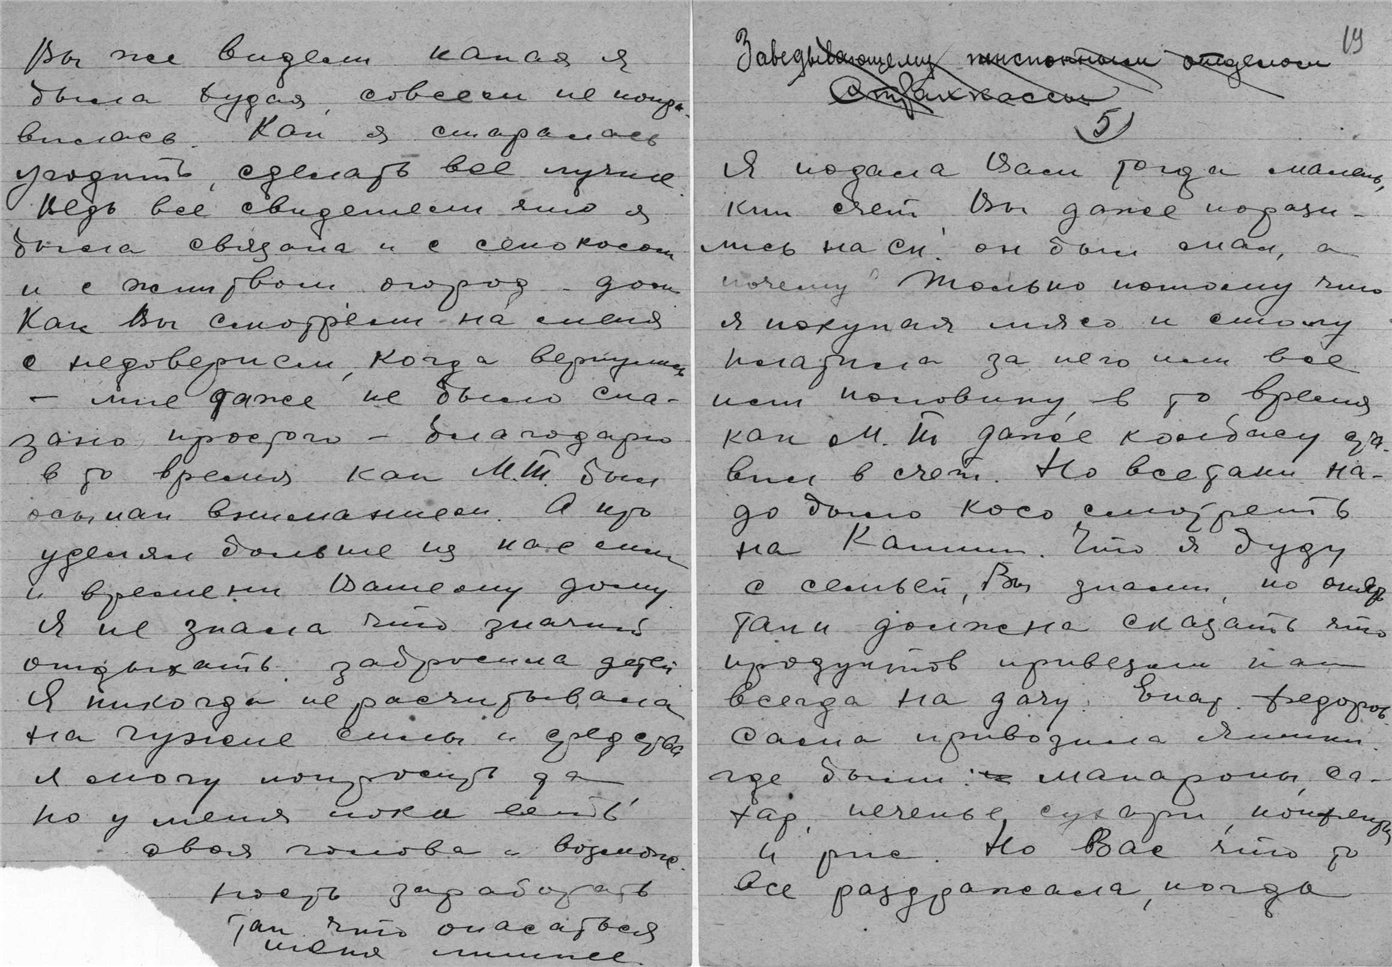 Вы же видели какая я
была худая, совсем не попра-
вилась. Как я старалась
угодить, сделать все лучше.
Ведь все свидетели что я
была связана и с сенокосом
и с жнитвом огород - дом
Как Вы смотрели на меня
с недоверием, когда вернулись
— мне даже не было ска-
зано простого — благодарю
в то время как М.Т. был
осыпан вниманием. А кто
уделял больше из нас сил
и времени Вашему дому
Я не знала что значит
отдыхать. забросила детей
Я никогда не расчитывала
на чужие силы и средства
я могу попросить да
но у меня пока есть
своя голова и возмож-
ность заработать
так что опасаться
меня лишнее.
19
Заведывающему отделом
Страхкассы
5)
Я подала Вам тогда малень-
кий счет Вы даже порази-
лись на сч. он был мал, а
почему? Только потому что
я покупая мясо и сталу
платила за него или все
или половину, в то время
как М.Т даже колбасу ста-
вил в счет. Но всетаки на-
до было косо смотреть
на Капит. Что я буду
с семьей, Вы знали, но опять
таки должна сказать что
продуктов привезли нам
всегда на дачу. Екат. Федоров.
сама привозила ящики.
где были макароны, са-
хар, печенье, сухари, конфекты
и рис. Но Вас что то
все раздражала, когда